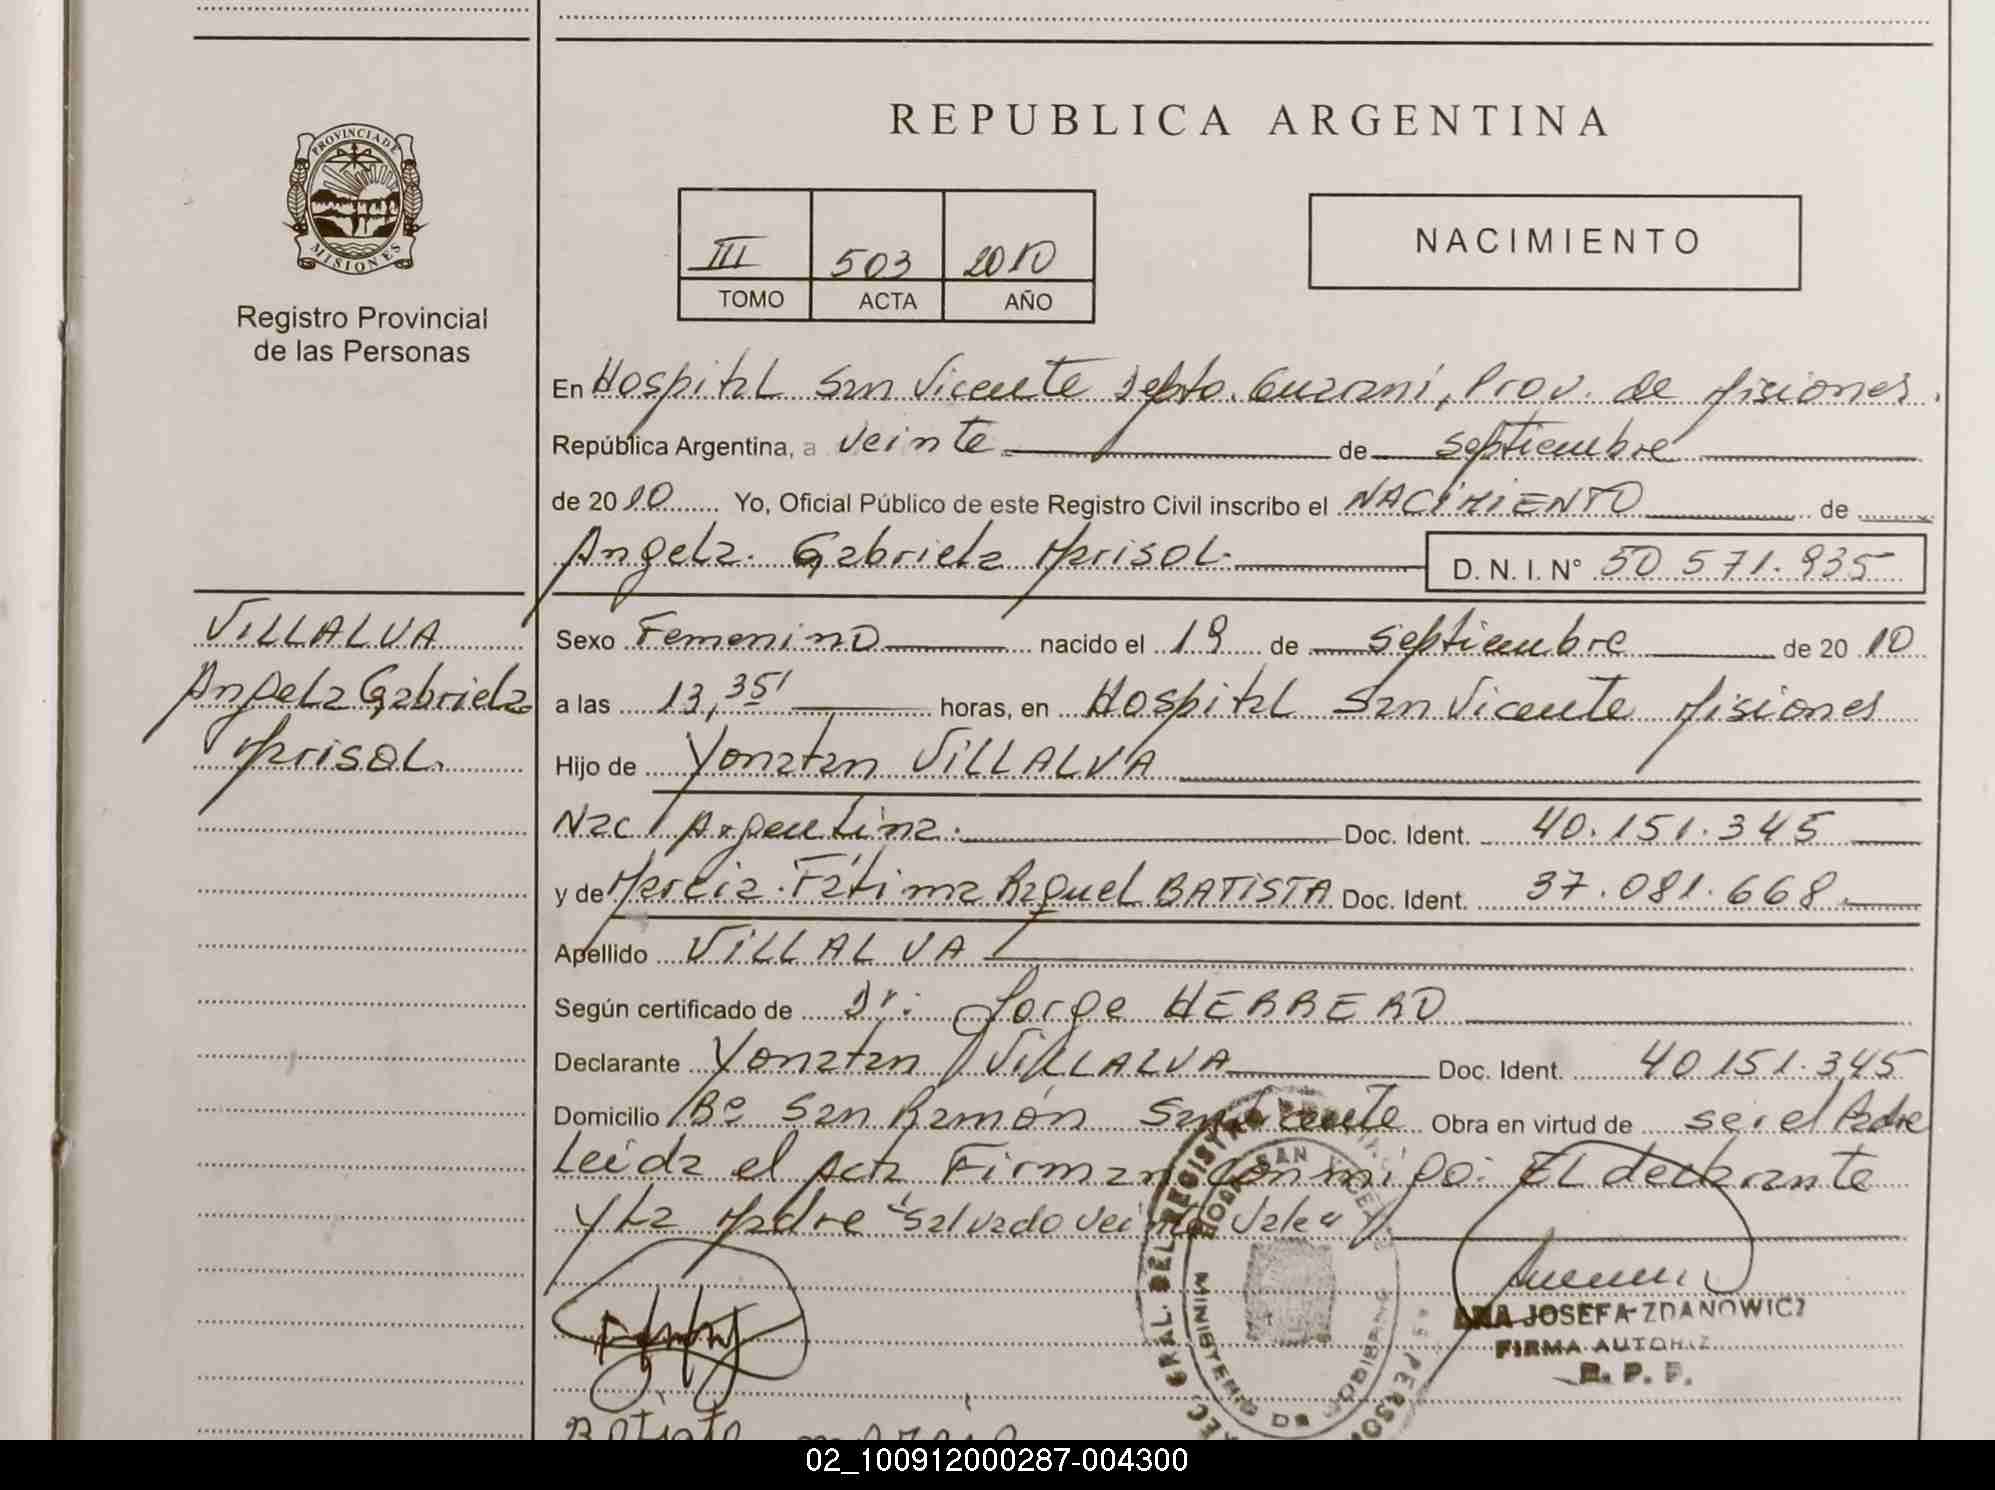 REPUBLICA ARGENTINA
PROVINCIA DE MISIONES
Registro Provincial
de las Personas
III 503 2010
TOMO ACTA AÑO
NACIMIENTO
En Hospital San Vicente Depto. Guaraní, Prov. de Misiones.
República Argentina, a veinte de septiembre
de 2010 Yo, Oficial Público de este Registro Civil inscribo el NACIMIENTO de
Angela Gabriela Marisol D. N. I. N° 50 571.935
VILLALVA
Angela Gabriela
Marisol.
Sexo Femenino nacido el 19 de septiembre de 2010
a las 13,35' horas, en Hospital San Vicente Misiones
Hijo de Yonatan VILLALVA
Nac Argentina. Doc. Ident. 40.151.345
y de Marcia Fátima Raquel BATISTA Doc. Ident. 37.081.668
Apellido VILLALVA
Según certificado de Dr: Jorge HERRERO
Declarante Yonatan VILLALVA Doc. Ident. 40151.345
Domicilio Bº San Ramón San Vicente Obra en virtud de ser el Padre
Leida el Acta Firman conmigo: El declarante
y la Madre "Salvado veinte Vale"
ANA JOSEFA ZDANOWICZ
FIRMA AUTORIZ
R. P. P.
02_100912000287-004300